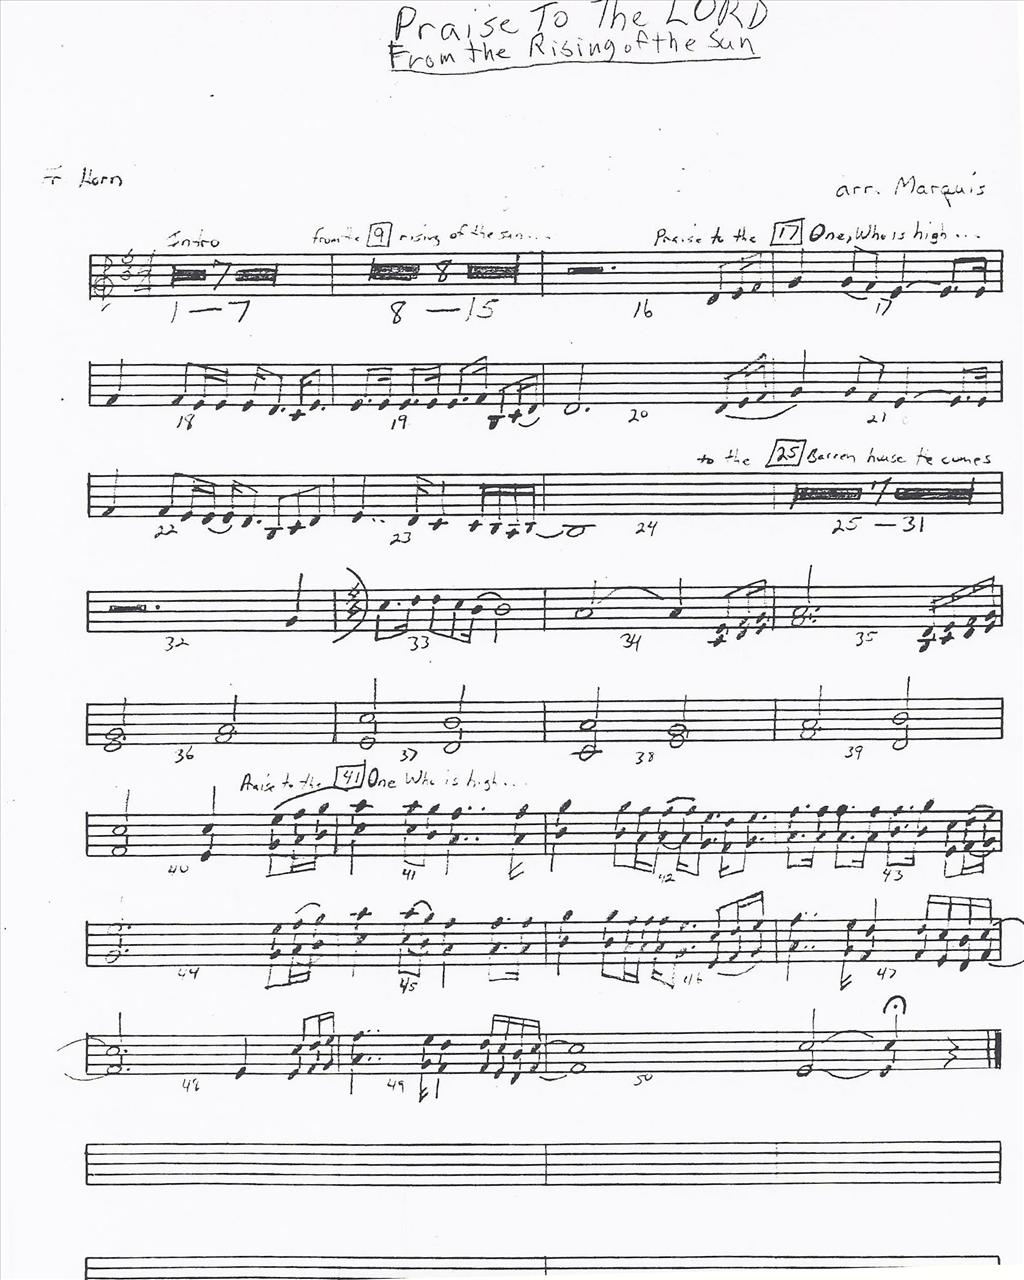 Praise To The LORD
From the Rising of the Sun
Fr Horn
arr. Marquis
Intro from the 9 rising of the sun... Praise to the 17 One, Who is high...
7 8
1 — 7 8 — 15 16 17
18 19 20 21
to the 25 Barren house He comes
7
22 23 24 25 — 31
32 33 34 35
36 37 38 39
Praise to the 41 One Who is high...
40 41 42 43
44 45 46 47
48 49 50